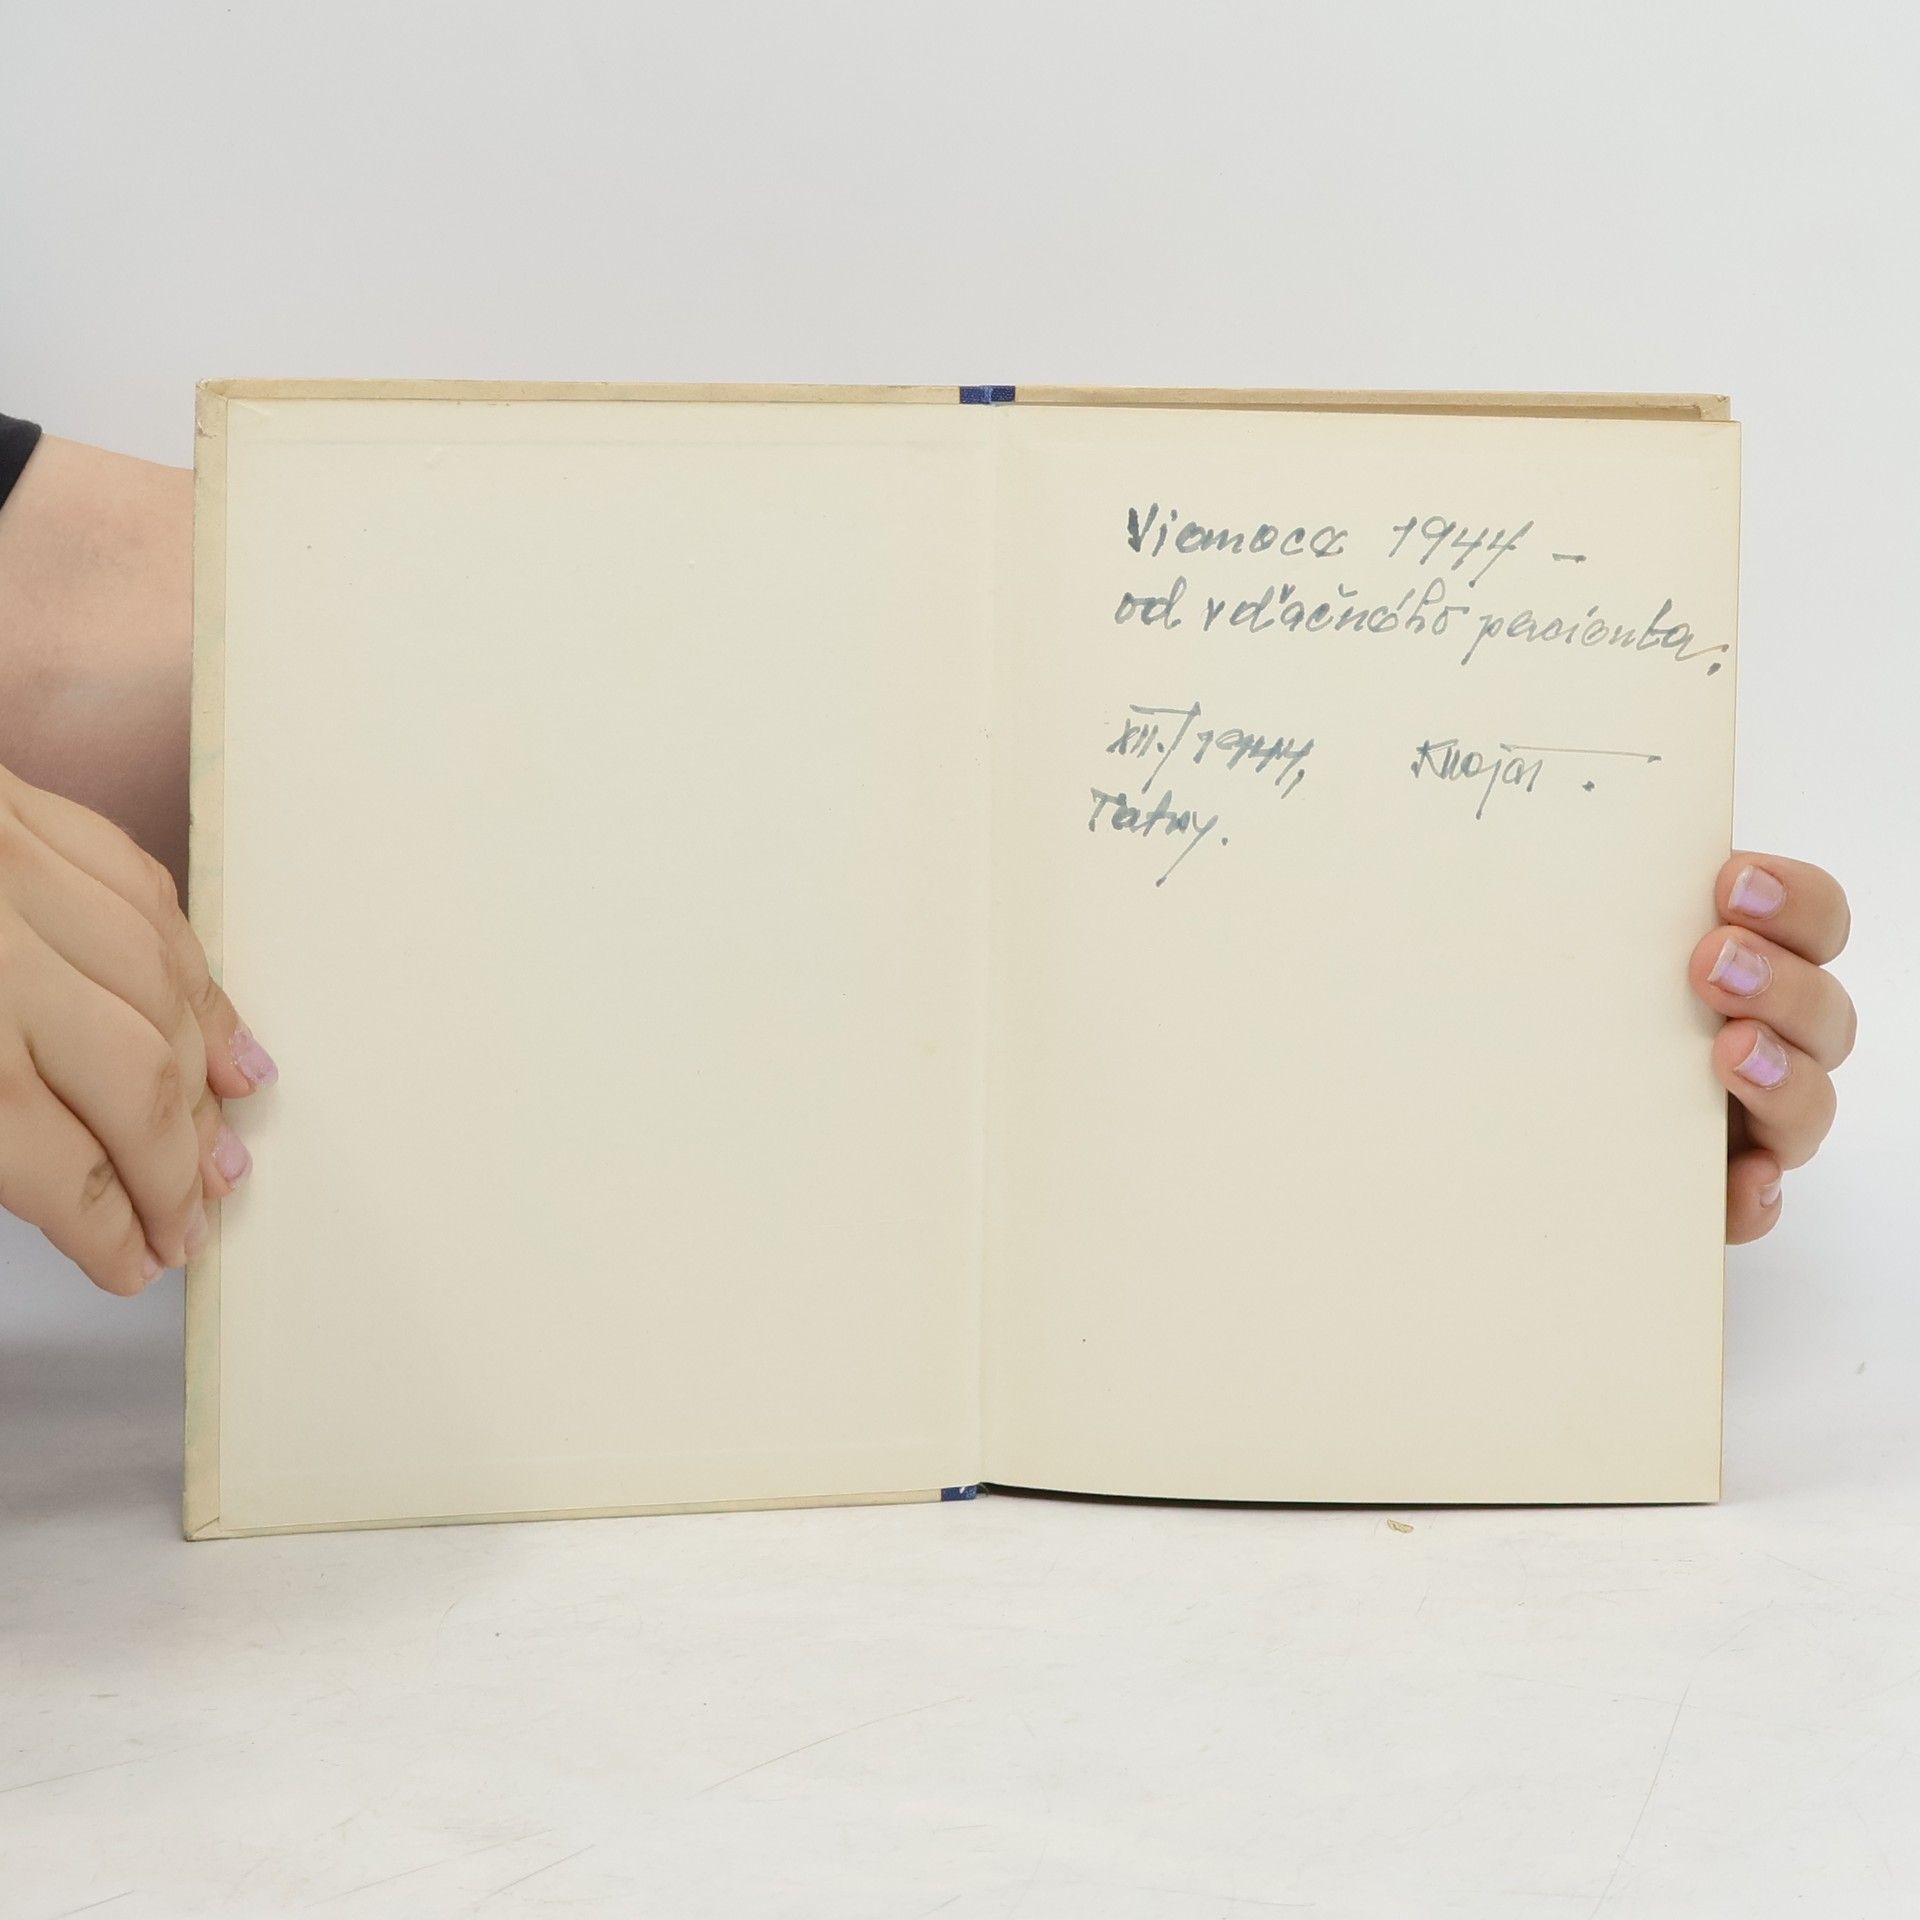 Vianoce 1944 –
od vďačného pacienta.
XII./1944,
Tatry.